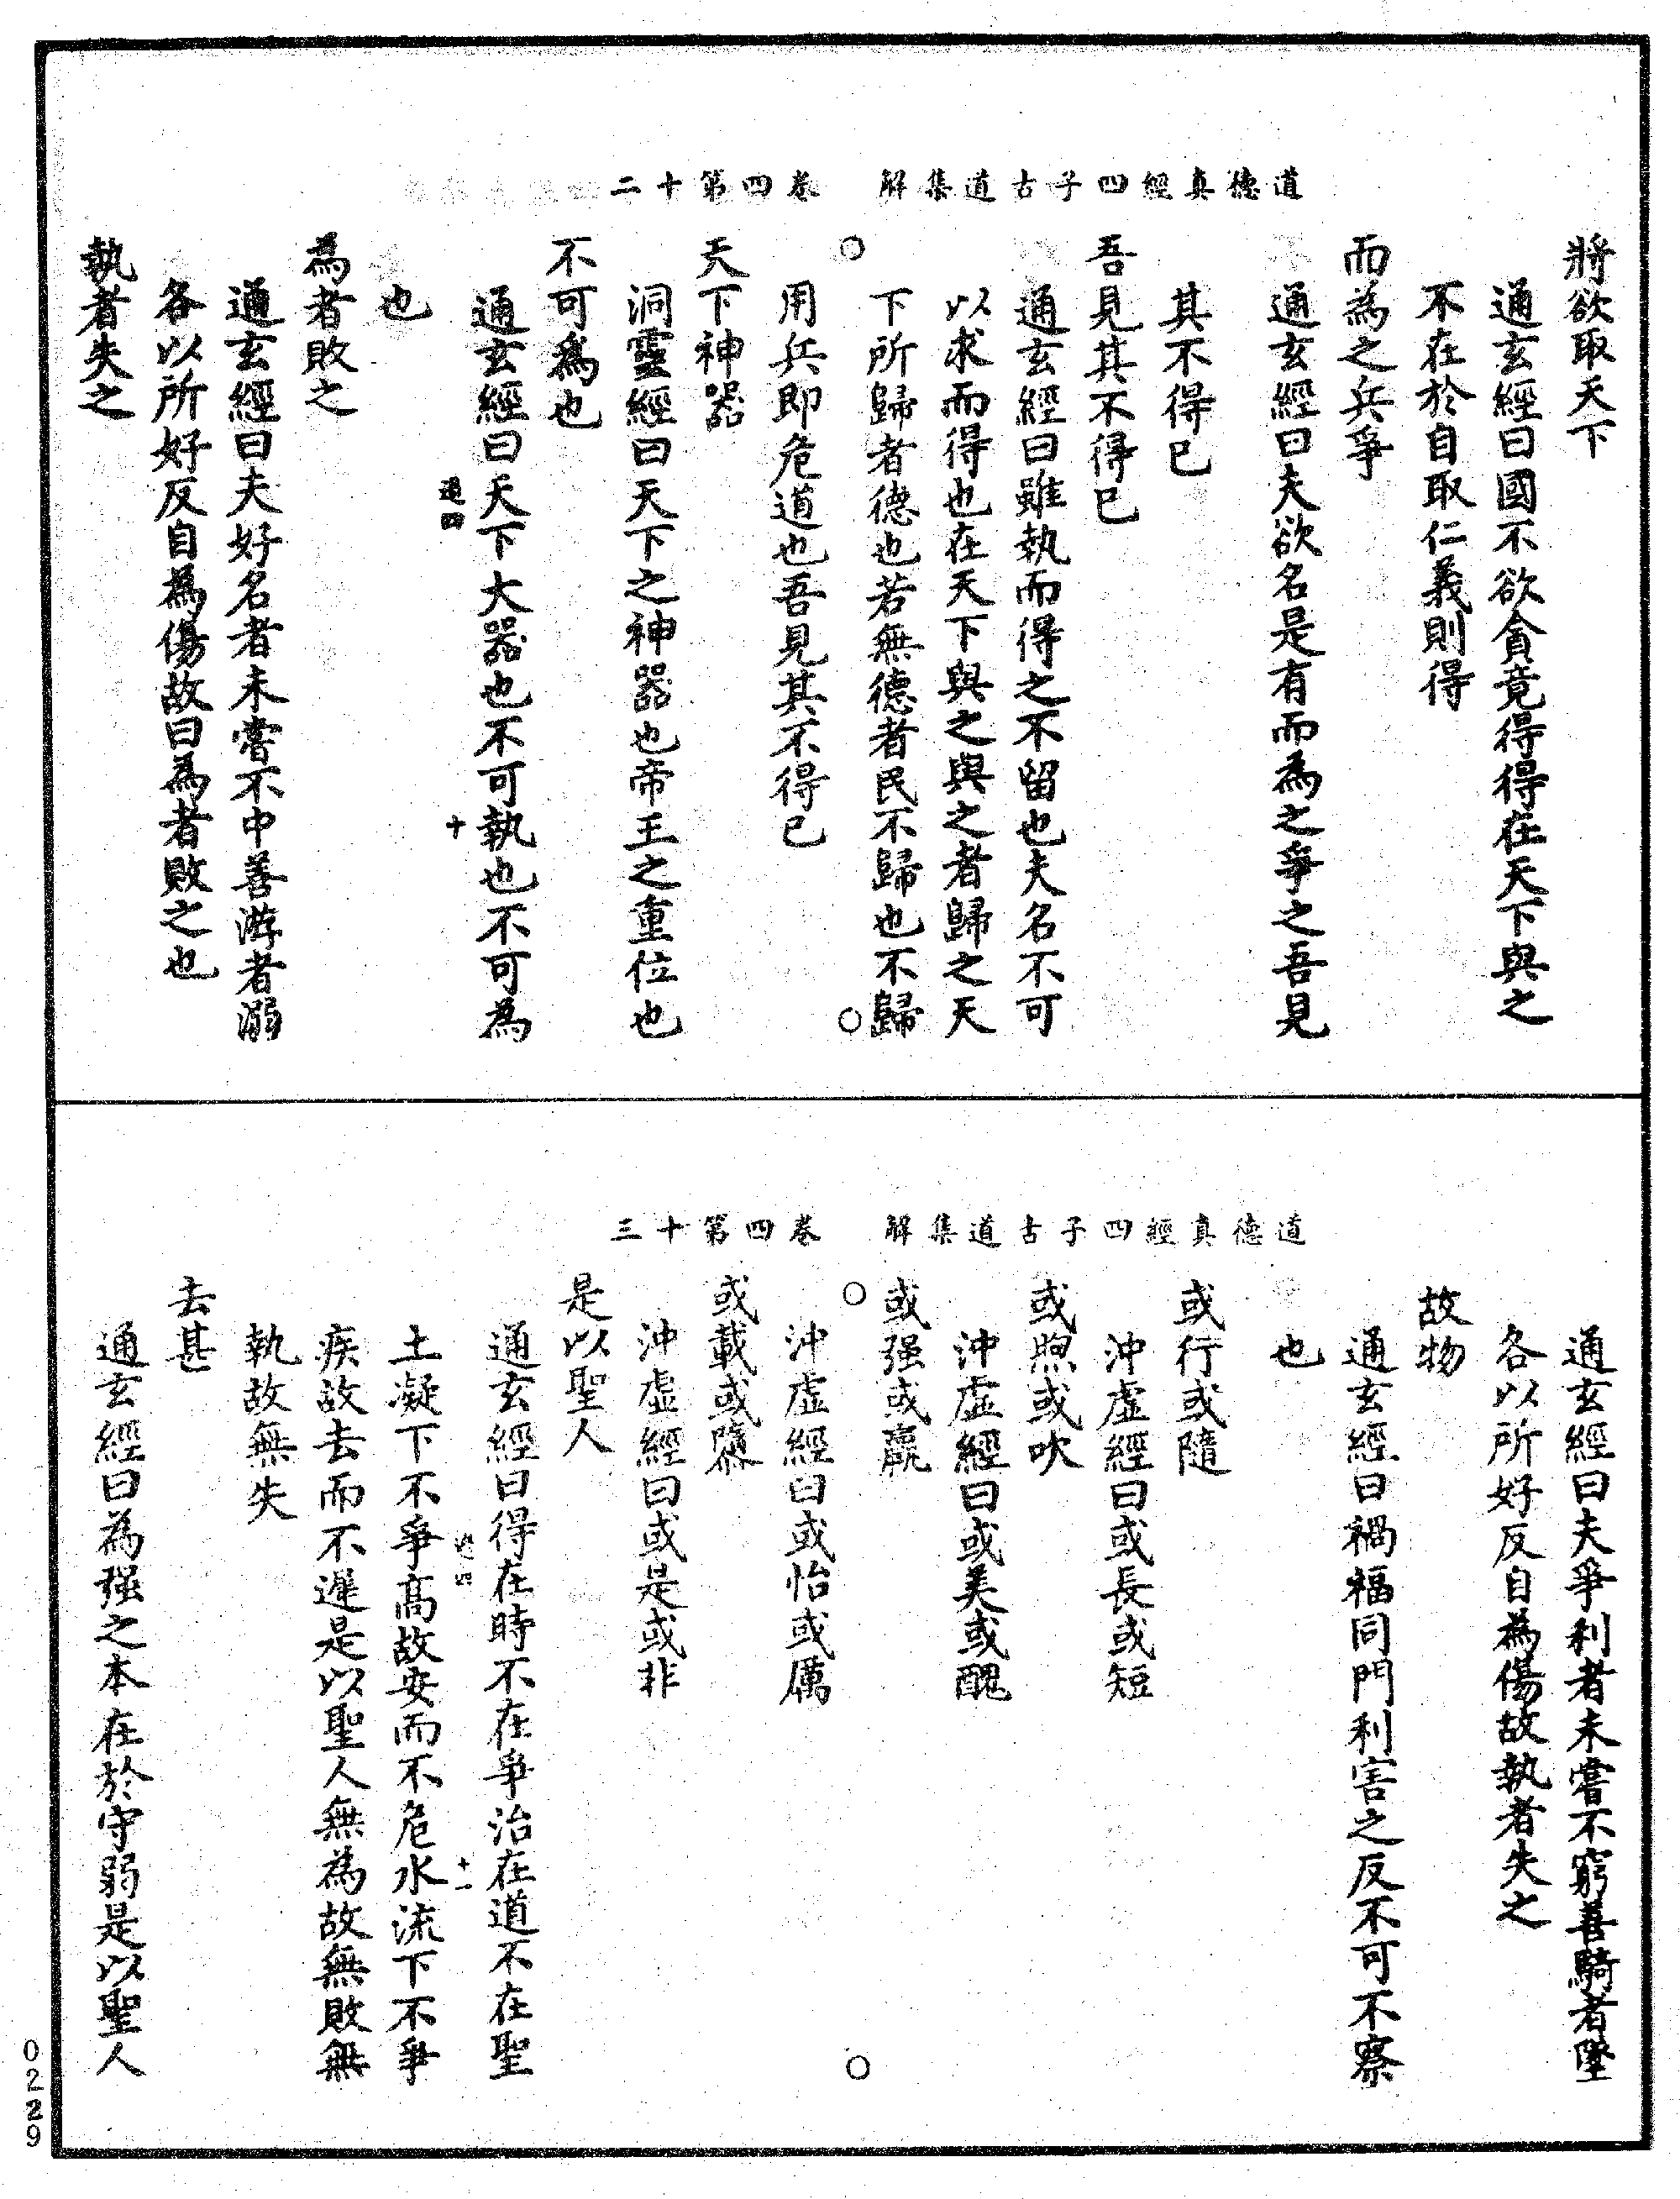 道德真經四子古道集解　卷四第十二
將欲取天下
通玄經曰國不欲貪竟得得在天下與之
不在於自取仁義則得
而為之兵爭
通玄經曰夫欲名是有而為之爭之吾見
其不得已
吾見其不得已
通玄經曰雖執而得之不留也夫名不可
以求而得也在天下與之與之者歸之天
下所歸者德也若無德者民不歸也不歸
用兵即危道也吾見其不得已
天下神器
洞靈經曰天下之神器也帝王之重位也
不可為也
通玄經曰天下大器也不可執也不可為
過四　十
也
為者敗之
通玄經曰夫好名者未嘗不中善游者溺
各以所好反自為傷故曰為者敗之也
執者失之
道德真經四子古道集解　卷四第十三
通玄經曰夫爭利者未嘗不窮善騎者墜
各以所好反自為傷故執者失之
故物
通玄經曰禍福同門利害之反不可不察
也
或行或隨
沖虛經曰或長或短
或喣或吹
沖虛經曰或美或醜
或强或羸
沖虛經曰或怡或厲
或載或隳
沖虛經曰或是或非
是以聖人
通玄經曰得在時不在爭治在道不在聖
四　十一
土凝下不爭高故安而不危水流下不爭
疾故去而不遲是以聖人無為故無敗無
執故無失
去甚
通玄經曰為强之本在於守弱是以聖人
0229